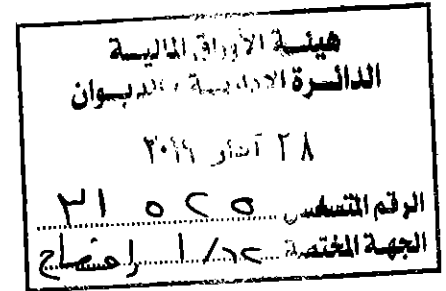 هيئة الأوراق المالية
الدائرة الادارية / الديوان
٢٨ آذار
الرقم المتسلسل ٣١ ٥٢٥
الجهة المختصة إفصاح